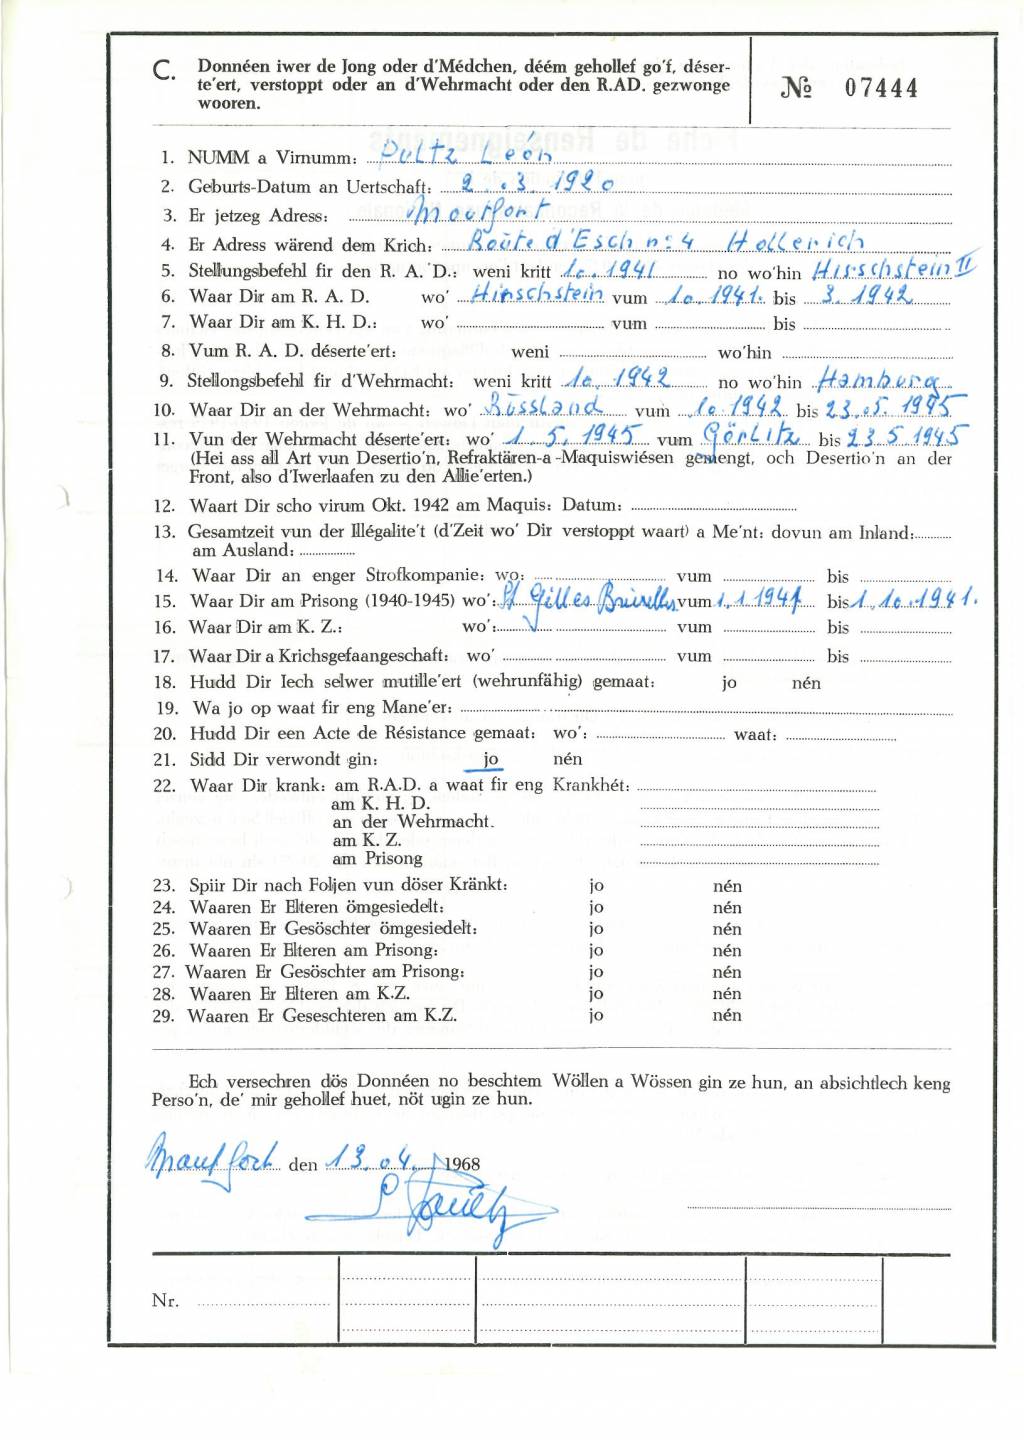 C. Donnéen iwer de Jong oder d'Médchen, déém gehollef go'f, déser-
te'ert, verstoppt oder an d'Wehrmacht oder den R.AD. gezwonge
wooren.
№ 07444
1. NUMM a Virnumm: Pultz León
2. Geburts-Datum an Uertschaft: 2.3.1920
3. Er jetzeg Adress: Moutfort
4. Er Adress wärend dem Krich: Route d'Esch n: 4 Hollerich
5. Stellungsbefehl fir den R. A. D.: weni kritt 10.1941 no wo'hin Hirschstein II
6. Waar Dir am R. A. D. wo' Hirschstein vum 10.1941. bis 3.1942
7. Waar Dir am K. H. D.: wo' vum bis
8. Vum R. A. D. déserte'ert: weni wo'hin
9. Stellongsbefehl fir d'Wehrmacht: weni kritt 10.1942 no wo'hin Hamburg
10. Waar Dir an der Wehrmacht: wo' Russland vum 10.1942 bis 23.05.1945
11. Vun der Wehrmacht déserte'ert: wo' 1.5.1945 vum Görlitz bis 23.5.1945
(Hei ass all Art vun Desertio'n, Refraktären-a-Maquiswiésen gemengt, och Desertio'n an der
Front, also d'Iwerlaafen zu den Allie'erten.)
12. Waart Dir scho virum Okt. 1942 am Maquis: Datum:
13. Gesamtzeit vun der Illégalite't (d'Zeit wo' Dir verstoppt waart) a Me'nt: dovun am Inland:
am Ausland:
14. Waar Dir an enger Strofkompanie: wo: vum bis
15. Waar Dir am Prison (1940-1945) wo': St Gilles Bruxelles vum 1.1.1941 bis 1.10.1941.
16. Waar Dir am K. Z.: wo': vum bis
17. Waar Dir a Krichsgefaangeschaft: wo' vum bis
18. Hudd Dir Iech selwer mutille'ert (wehrunfähig) gemaat: jo nén
19. Wa jo op waat fir eng Mane'er:
20. Hudd Dir een Acte de Résistance gemaat: wo': waat:
21. Sidd Dir verwondt gin: jo nén
22. Waar Dir krank: am R.A.D. a waat fir eng Krankhét:
am K. H. D.
an der Wehrmacht.
am K. Z.
am Prisong
23. Spiir Dir nach Foljen vun döser Kränkt: jo nén
24. Waaren Er Elteren ömgesiedelt: jo nén
25. Waaren Er Gesöschter ömgesiedelt: jo nén
26. Waaren Er Elteren am Prisong: jo nén
27. Waaren Er Gesöschter am Prisong: jo nén
28. Waaren Er Elteren am K.Z. jo nén
29. Waaren Er Geseschteren am K.Z. jo nén
Ech versechren dös Donnéen no beschtem Wöllen a Wössen gin ze hun, an absichtlech keng
Perso'n, de' mir gehollef huet, nöt ugin ze hun.
Moutfort den 13.04. 1968
Nr.